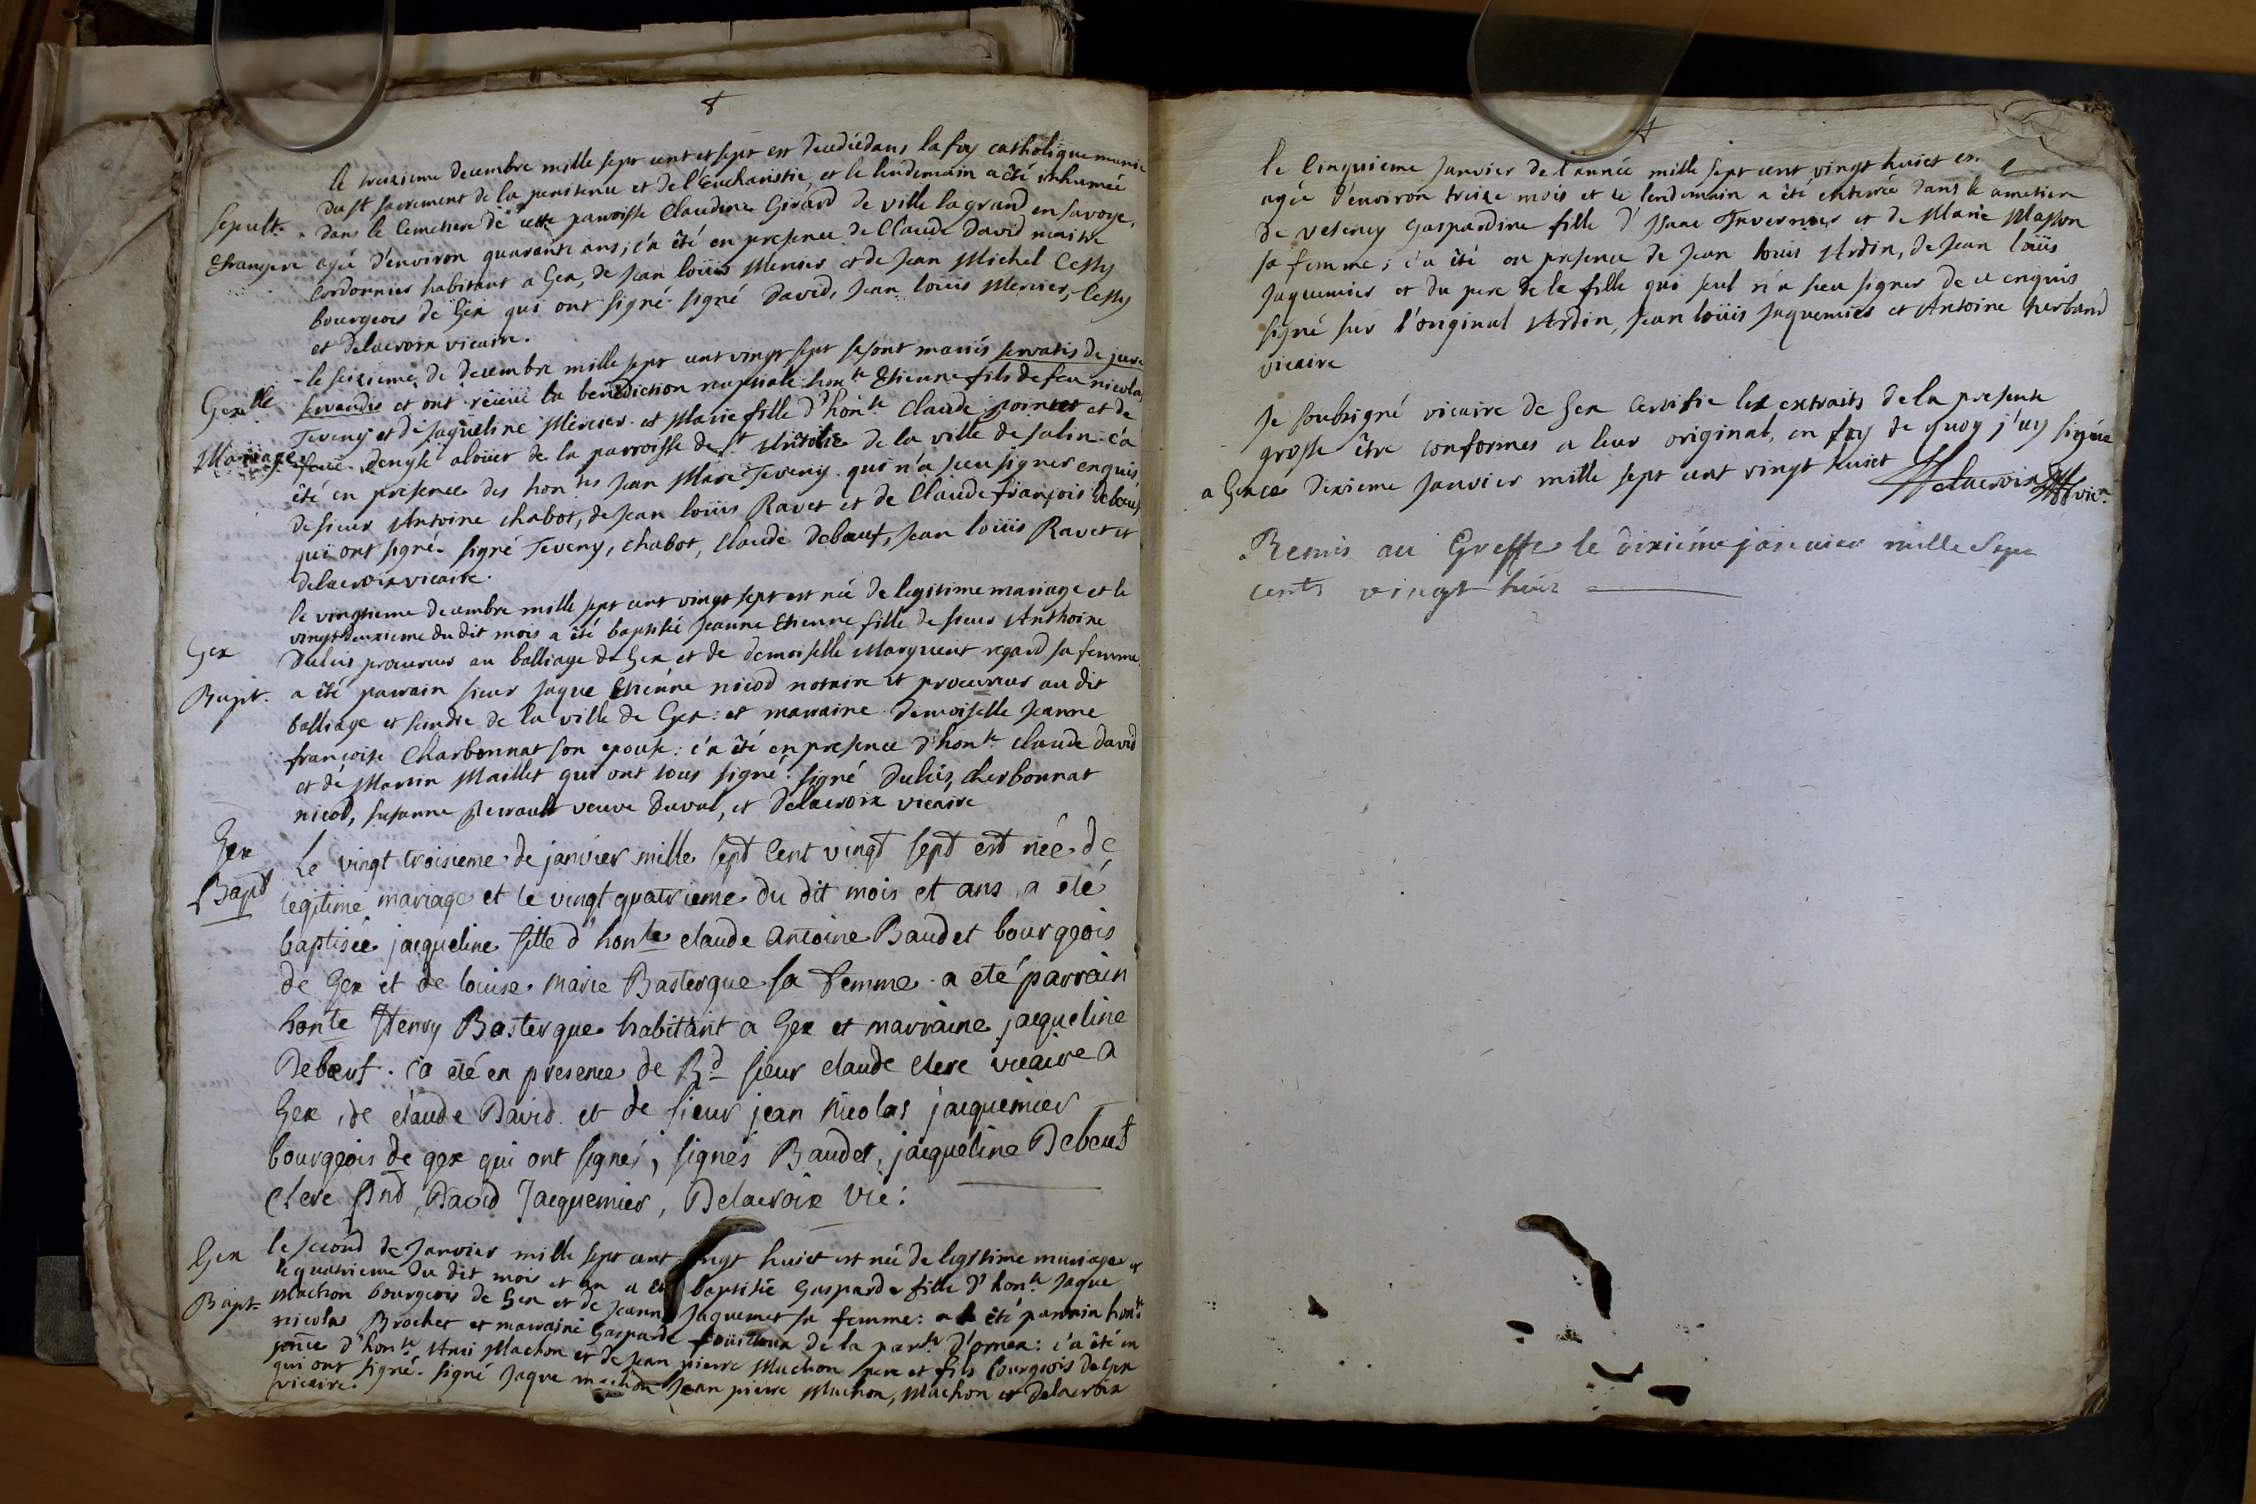 le treizieme decembre mille sept cent et sept est decedée dans la foy catholique munie
du st sacrement de la penitence et de l'Eucharistie et le lendemain a été inhumée
sepult. dans le Cemetiere de cette parroisse Claudine Girard de ville la grand en savoye,
Etrangere agée d'environ quarante ans, c'a été en presence de Claude David maitre
Cordonnier habitant a Gex, de Jean loüis Mercier et de Jean Michel Cessy
bourgeois de Gex qui ont signé. signé David, Jean loüis Mercier, Cessy
et Delacroix vicaire.
le seizieme de decembre mille sept cent vingt sept se sont mariés servatis de jure
Gex servandis et ont receü la benediction nuptiale honte Etienne fils de feu nicolas
Teveny et de Jaqueline Mercier et Marie fille d'honte Claude pointet et de
Mariage Denyse aloüer de la parroisse de st Anatolie de la ville de salin c'a
été en presence des hontes Jean Marc Teveny qui n'a sceu signer enquis
de sieur Antoine chabot, de Jean loüis Ravet et de Claude françois Debœuf
qui ont signé. signé Teveny, chabot, Claude Debœuf, Jean loüis Ravet et
Delacroix vicaire.
le vingtieme decembre mille sept cent vingt sept est née de legitime mariage et le
vingt deuxieme du dit mois a été baptisée Jeanne Etienne fille de sieur Anthoine
Gex Duluis procureur au balliage de Gex et de demoiselle Marguerit regard sa femme
Bapt. a été parrain sieur Jaque Etienne nicod notaire et procureur au dit
balliage et sindic de la ville de Gex: et marraine demoiselle Jeanne
françoise Charbonnat son epouse: c'a été en presence d'honte claude david
et de Martin Maillet qui ont tous signé. signé Duluis, cherbonnat
nicod, susanne Perrault veuve Duval, et Delacroix vicaire
Gex Le vingt troisieme de janvier mille sept Cent vingt sept est née de
Bapt legitime mariage et le vingt quatrieme du dit mois et ans a eté
baptisée jacqueline fille d'honte claude antoine Baudet bourgeois
de Gex et de louise marie Basterque sa femme. a eté parrain
honte Henry Basterque habitant a Gex et marraine jacqueline
Debœuf. ca eté en presence de Rd sieur claude clerc vicaire a
Gex, de claude David et de sieur jean nicolas jacquemier
bourgeois de gex qui ont signés, signés Baudet, jacqueline Debeuf
Clerc David Jacquemier, Delacroix vic:
Gex le second de Janvier mille sept cent vingt huict est née de legitime mariage et
le quatrieme du dit mois et an a été baptisée Gasparde fille d'honte Jaque
Bapt. Machon bourgeois de Gex et de Jeanne Jaquemet sa femme: a été parrain honte
nicolas Brochet et marraine Gasparde foüilloux de la parte d'ornex: c'a été en
pnce d'honte Ami Machon et de Jean pierre Machon pere et fils bourgeois de Gex
qui ont signé. signé Jaque machon Jean pierre Machon, Machon et Delacroix
vicaire.
le Cinquieme Janvier de l'année mille sept cent vingt huict est
agée d'environ treize mois et le lendemain a été enterrée dans le cimetiere
de vesency Gaspardine fille d'Isaac Tavernier et de Marie Masson
sa femme; c'a été en presence de Jean louis Ardin, de Jean loüis
Jaquemier et du pere de la fille qui seul n'a sceu signer de ce enquis
signé sur l'original Ardin, Jean loüis Jaquemier et Antoine
vicaire
Je soubsigné vicaire de Gex Certifie les extraits de la presente
grosse être conformes a leur original, en foy de quoy j'ay signé
a Gex ce dixieme Janvier mille sept cent vingt huict Delacroix vicre
Remis au Greffe le dixiéme janvier mille Sept
cents vingt huit